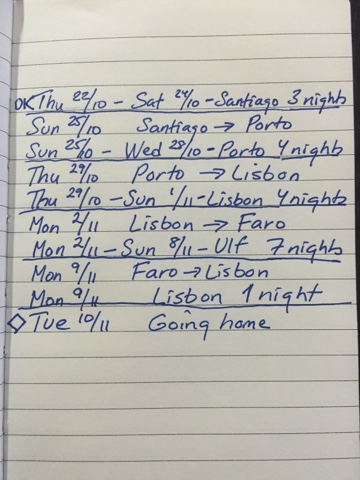 OK Thu 22/10 - Sat 24/10 - Santiago 3 nights
Sun 25/10 Santiago → Porto
Sun 25/10 - Wed 28/10 - Porto 4 nights
Thu 29/10 Porto → Lisbon
Thu 29/10 - Sun 1/11 - Lisbon 4 nights
Mon 2/11 Lisbon → Faro
Mon 2/11 - Sun 8/11 - Ulf 7 nights
Mon 9/11 Faro → Lisbon
Mon 9/11 Lisbon 1 night
◇ Tue 10/11 Going home